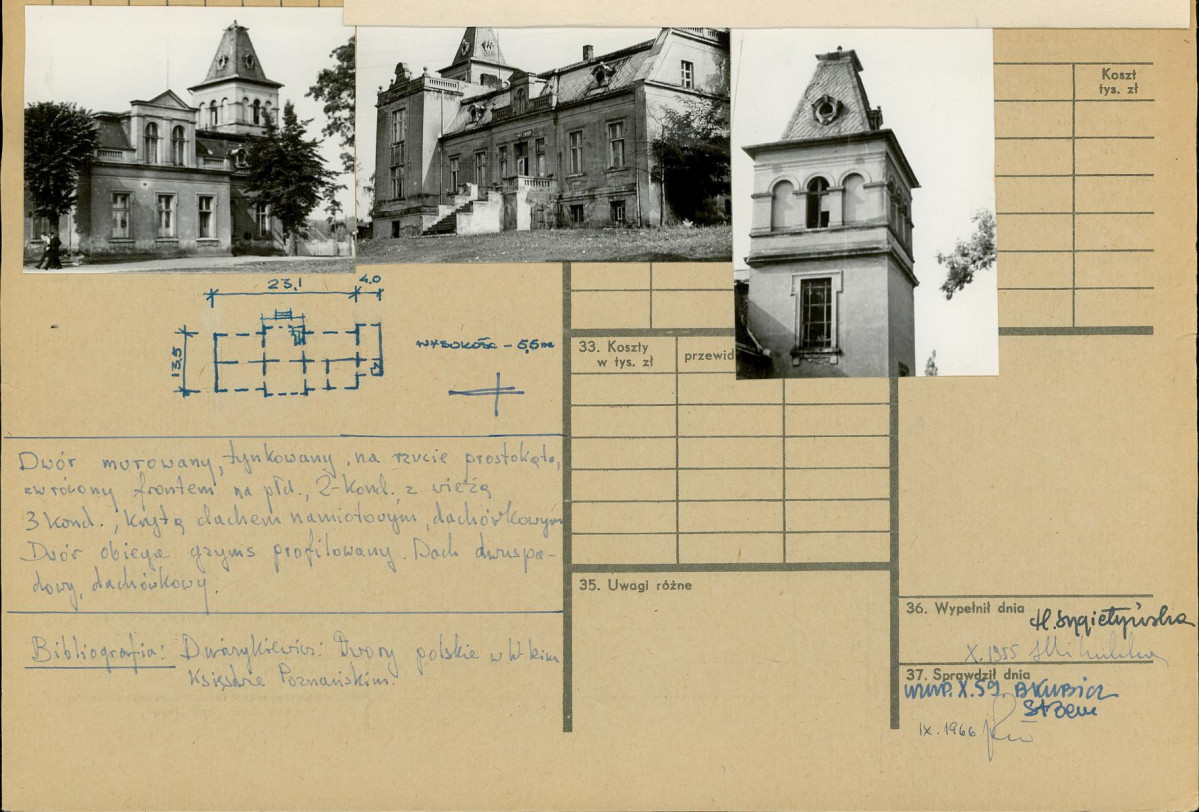 Koszt
tys. zł
23,1
4,0
13,5
WYSOKOŚĆ - 5,5m
33. Koszty
w tys. zł
przewid
Dwór murowany, tynkowany, na rzucie prostokąta,
zwrócony frontem na płd., 2-kond. z wieżą
3 kond., krytą dachem namiotowym, dachówkowym
Dwór obiega gzyms profilowany. Dach dwuspa-
dowy, dachówkowy.
Bibliografia: Dworzykiewicz: Dwory polskie w W-kim
Księstwie Poznańskim.
35. Uwagi różne
36. Wypełnił dnia
X. 1955
37. Sprawdził dnia
X.59.
IX. 1966